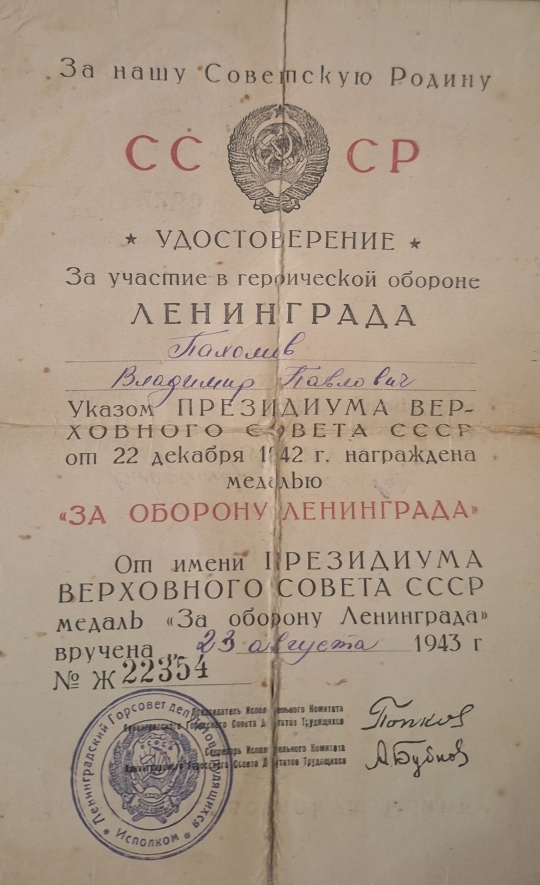 За нашу Советскую Родину
СС СР
★ УДОСТОВЕРЕНИЕ ★
За участие в героической обороне
ЛЕНИНГРАДА
Пахомов
Владимир Павлович
Указом ПРЕЗИДИУМА ВЕР-
ХОВНОГО СОВЕТА СССР
от 22 декабря 1942 г. награждена
медалью
«ЗА ОБОРОНУ ЛЕНИНГРАДА»
От имени ПРЕЗИДИУМА
ВЕРХОВНОГО СОВЕТА СССР
медаль «За оборону Ленинграда»
вручена „23 августа 1943 г
№ Ж 22354
Председатель Исполнительного Комитета
Ленинградского Городского Совета Депутатов Трудящихся
Попков
Секретарь Исполнительного Комитета
Ленинградского Городского Совета Депутатов Трудящихся
АБубнов
Ленинградский Горсовет депутатов трудящихся
Исполком